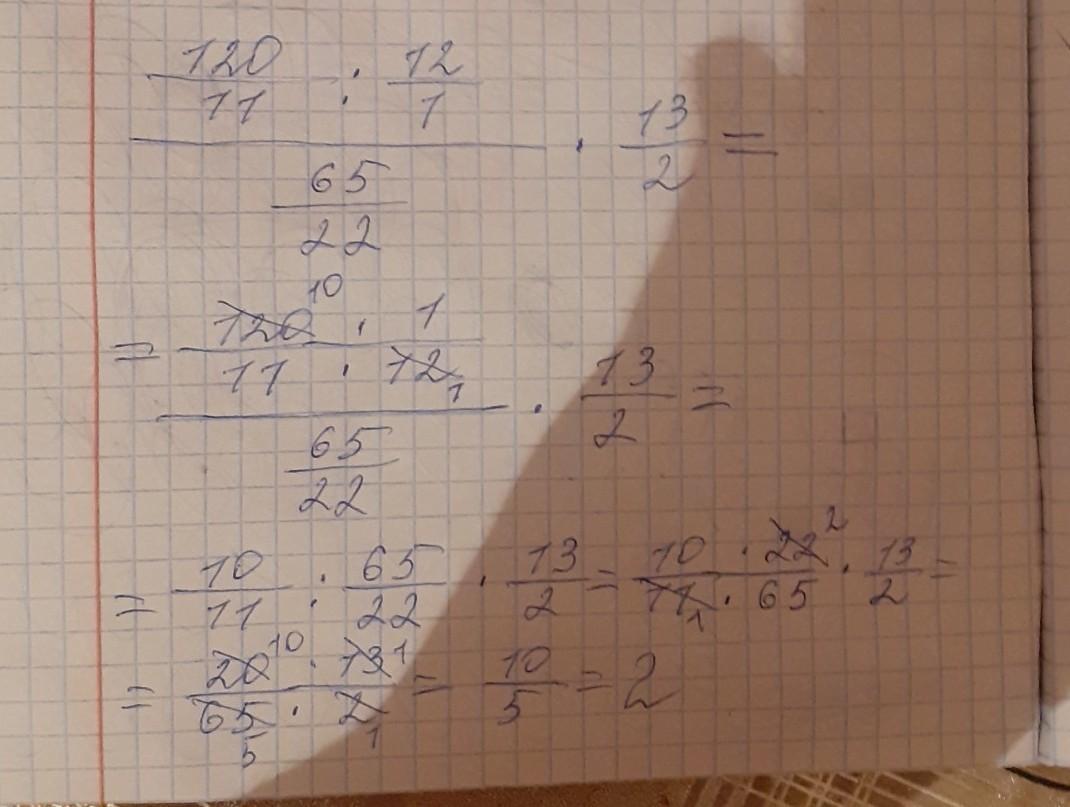 120/11 : 12/1
/ 65/22 · 13/2 =
= 120 10 · 1 / 11 · 12 1
/ 65/22 · 13/2 =
= 10/11 : 65/22 · 13/2 = 10 · 22 2 / 11 1 · 65 · 13/2 =
= 20 10 · 13 1 / 65 5 · 2 1 = 10/5 = 2